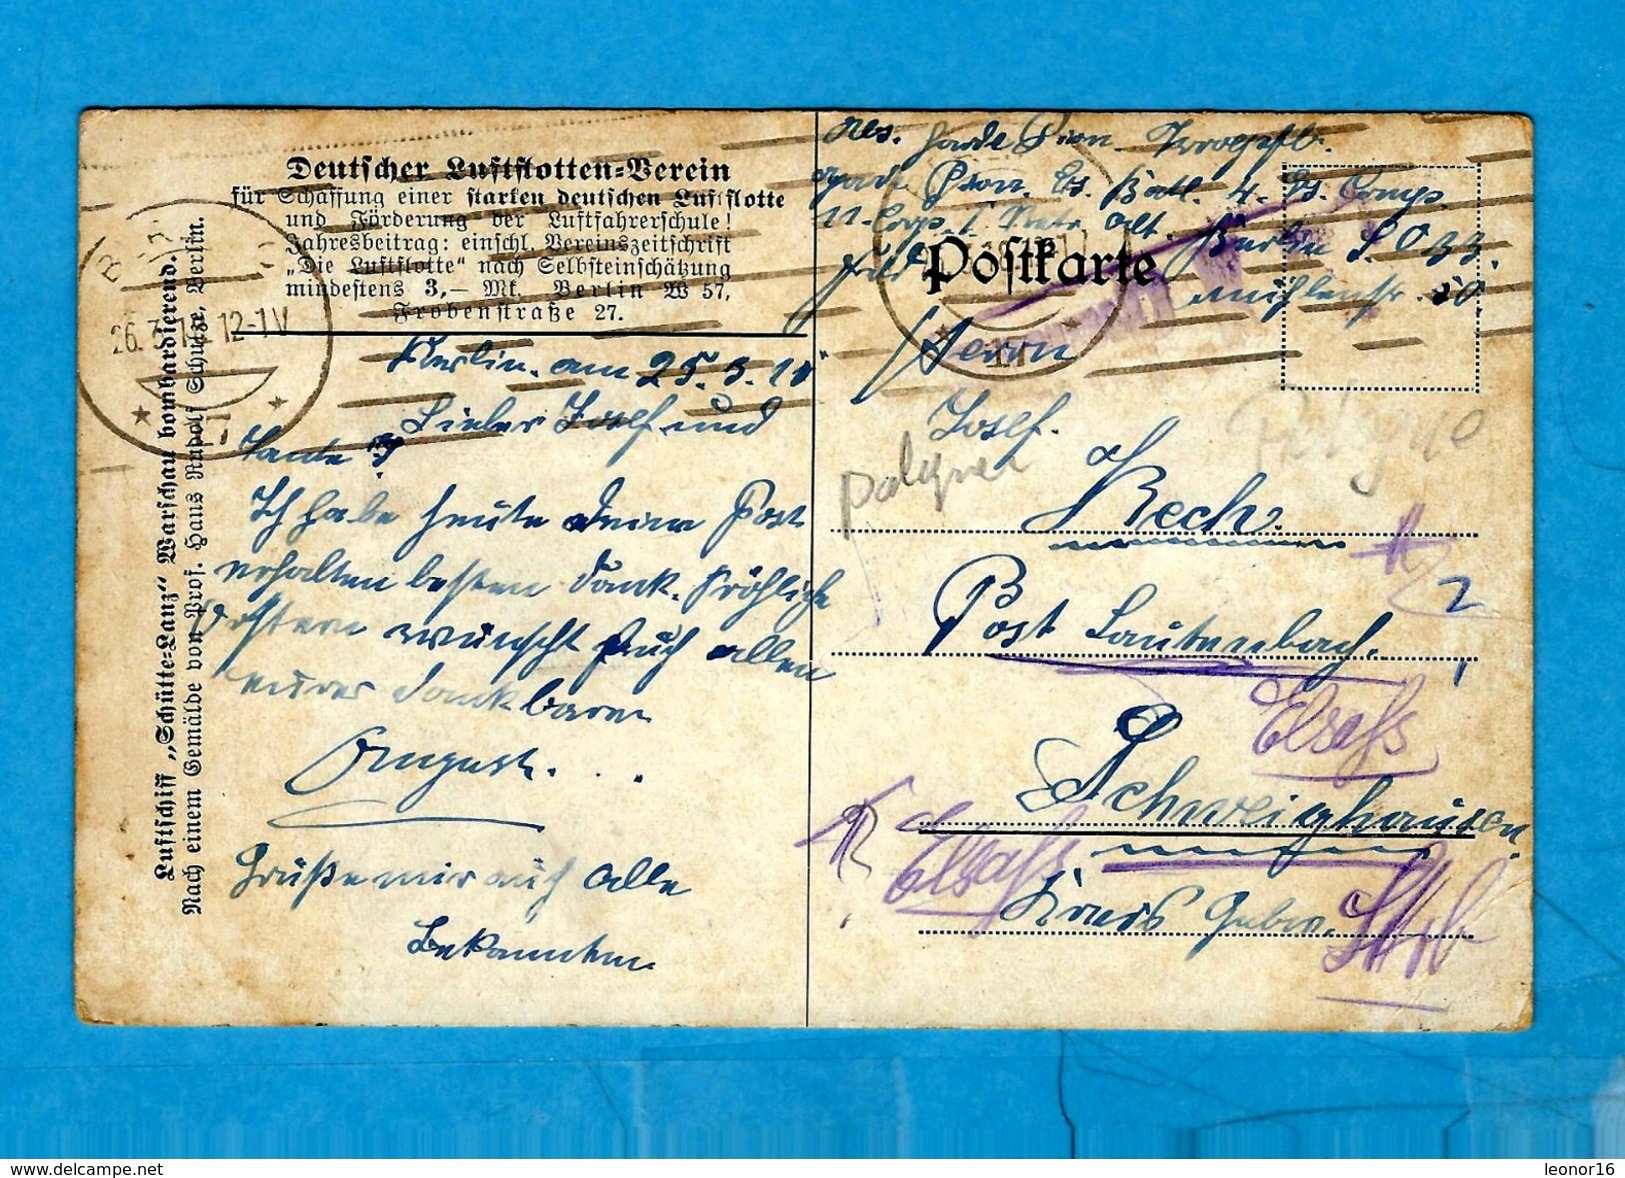 Deutscher Luftflotten-Verein
für Schaffung einer starken deutschen Luftflotte
und Förderung der Luftfahrerschule!
Jahresbeitrag: einschl. Vereinszeitschrift
„Die Luftflotte“ nach Selbsteinschätzung
mindestens 3,— Mk. Berlin W 57,
Frobenstraße 27.
Luftschiff „Schütte-Lanz“ Warschau bombardierend.
Nach einem Gemälde von Prof. Hans Rudolf Schulze, Berlin.
26.3. 12-1 V
Berlin. am 25.3.
Lieber Josef und
Tante
Ich habe heute deine Post
erhalten besten Dank. Fröhliche
Ostern wünscht Euch allen
eurer dankbarer
August . . .
Grüße mir auch alle
Bekannten
Res. Garde Pion.
Garde Pion. Ers. Batl. 4. Ers. Comp.
Berlin S.O 33.
Postkarte
Herrn
Josef.
Rech.
Post Lautenbach.
Elsass
Schweighausen
Elsass
Kreis Gebw.
leonor16
delcampe.net